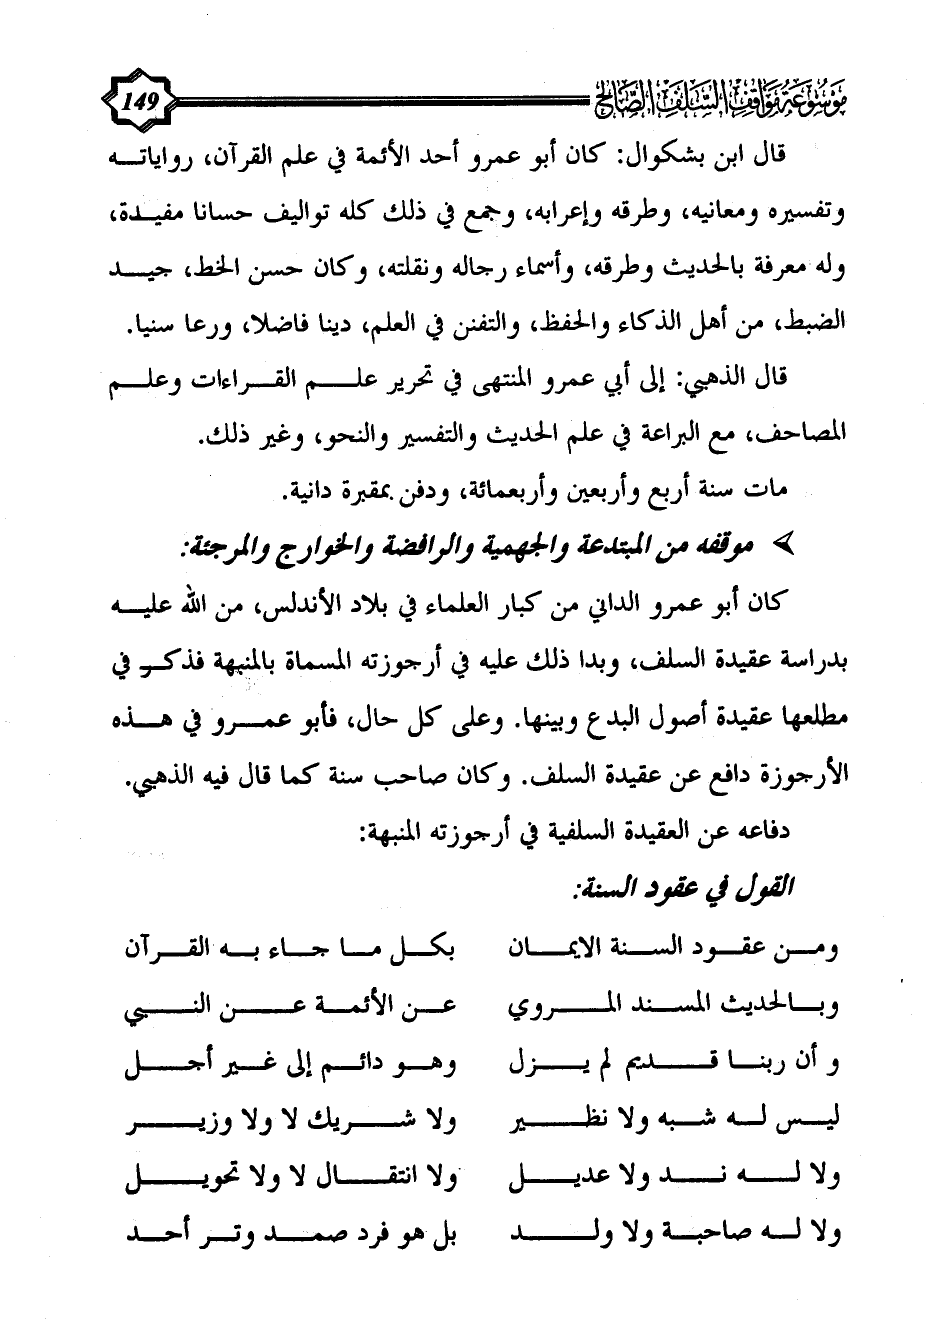 موسوعة مواقف السلف الصالح 149
قال ابن بشكوال: كان أبو عمرو أحد الأئمة في علم القرآن، رواياته
وتفسيره ومعانيه، وطرقه وإعرابه، وجمع في ذلك كله تواليف حسانا مفيدة،
وله معرفة بالحديث وطرقه، وأسماء رجاله ونقلته، وكان حسن الخط، جيد
الضبط، من أهل الذكاء والحفظ، والتفنن في العلم، دينا فاضلا، ورعا سنيا.
قال الذهبي: إلى أبي عمرو المنتهى في تحرير علم القراءات وعلم
المصاحف، مع البراعة في علم الحديث والتفسير والنحو، وغير ذلك.
مات سنة أربع وأربعين وأربعمائة، ودفن بمقبرة دانية.
➢ موقفه من المبتدعة والجهمية والرافضة والخوارج والمرجئة:
كان أبو عمرو الداني من كبار العلماء في بلاد الأندلس، من الله عليه
بدراسة عقيدة السلف، وبدا ذلك عليه في أرجوزته المسماة بالمنبهة فذكر في
مطلعها عقيدة أصول البدع وبينها. وعلى كل حال، فأبو عمرو في هذه
الأرجوزة دافع عن عقيدة السلف. وكان صاحب سنة كما قال فيه الذهبي.
دفاعه عن العقيدة السلفية في أرجوزته المنبهة:
القول في عقود السنة:
ومن عقود السنة الايمان بكل ما جاء به القرآن
وبالحديث المسند المروي عن الأئمة عن النبي
و أن ربنا قديم لم يزل وهو دائم إلى غير أجل
ليس له شبه ولا نظير ولا شريك لا ولا وزير
ولا له ند ولا عديل ولا انتقال لا ولا تحويل
ولا له صاحبة ولا ولد بل هو فرد صمد وتر أحد